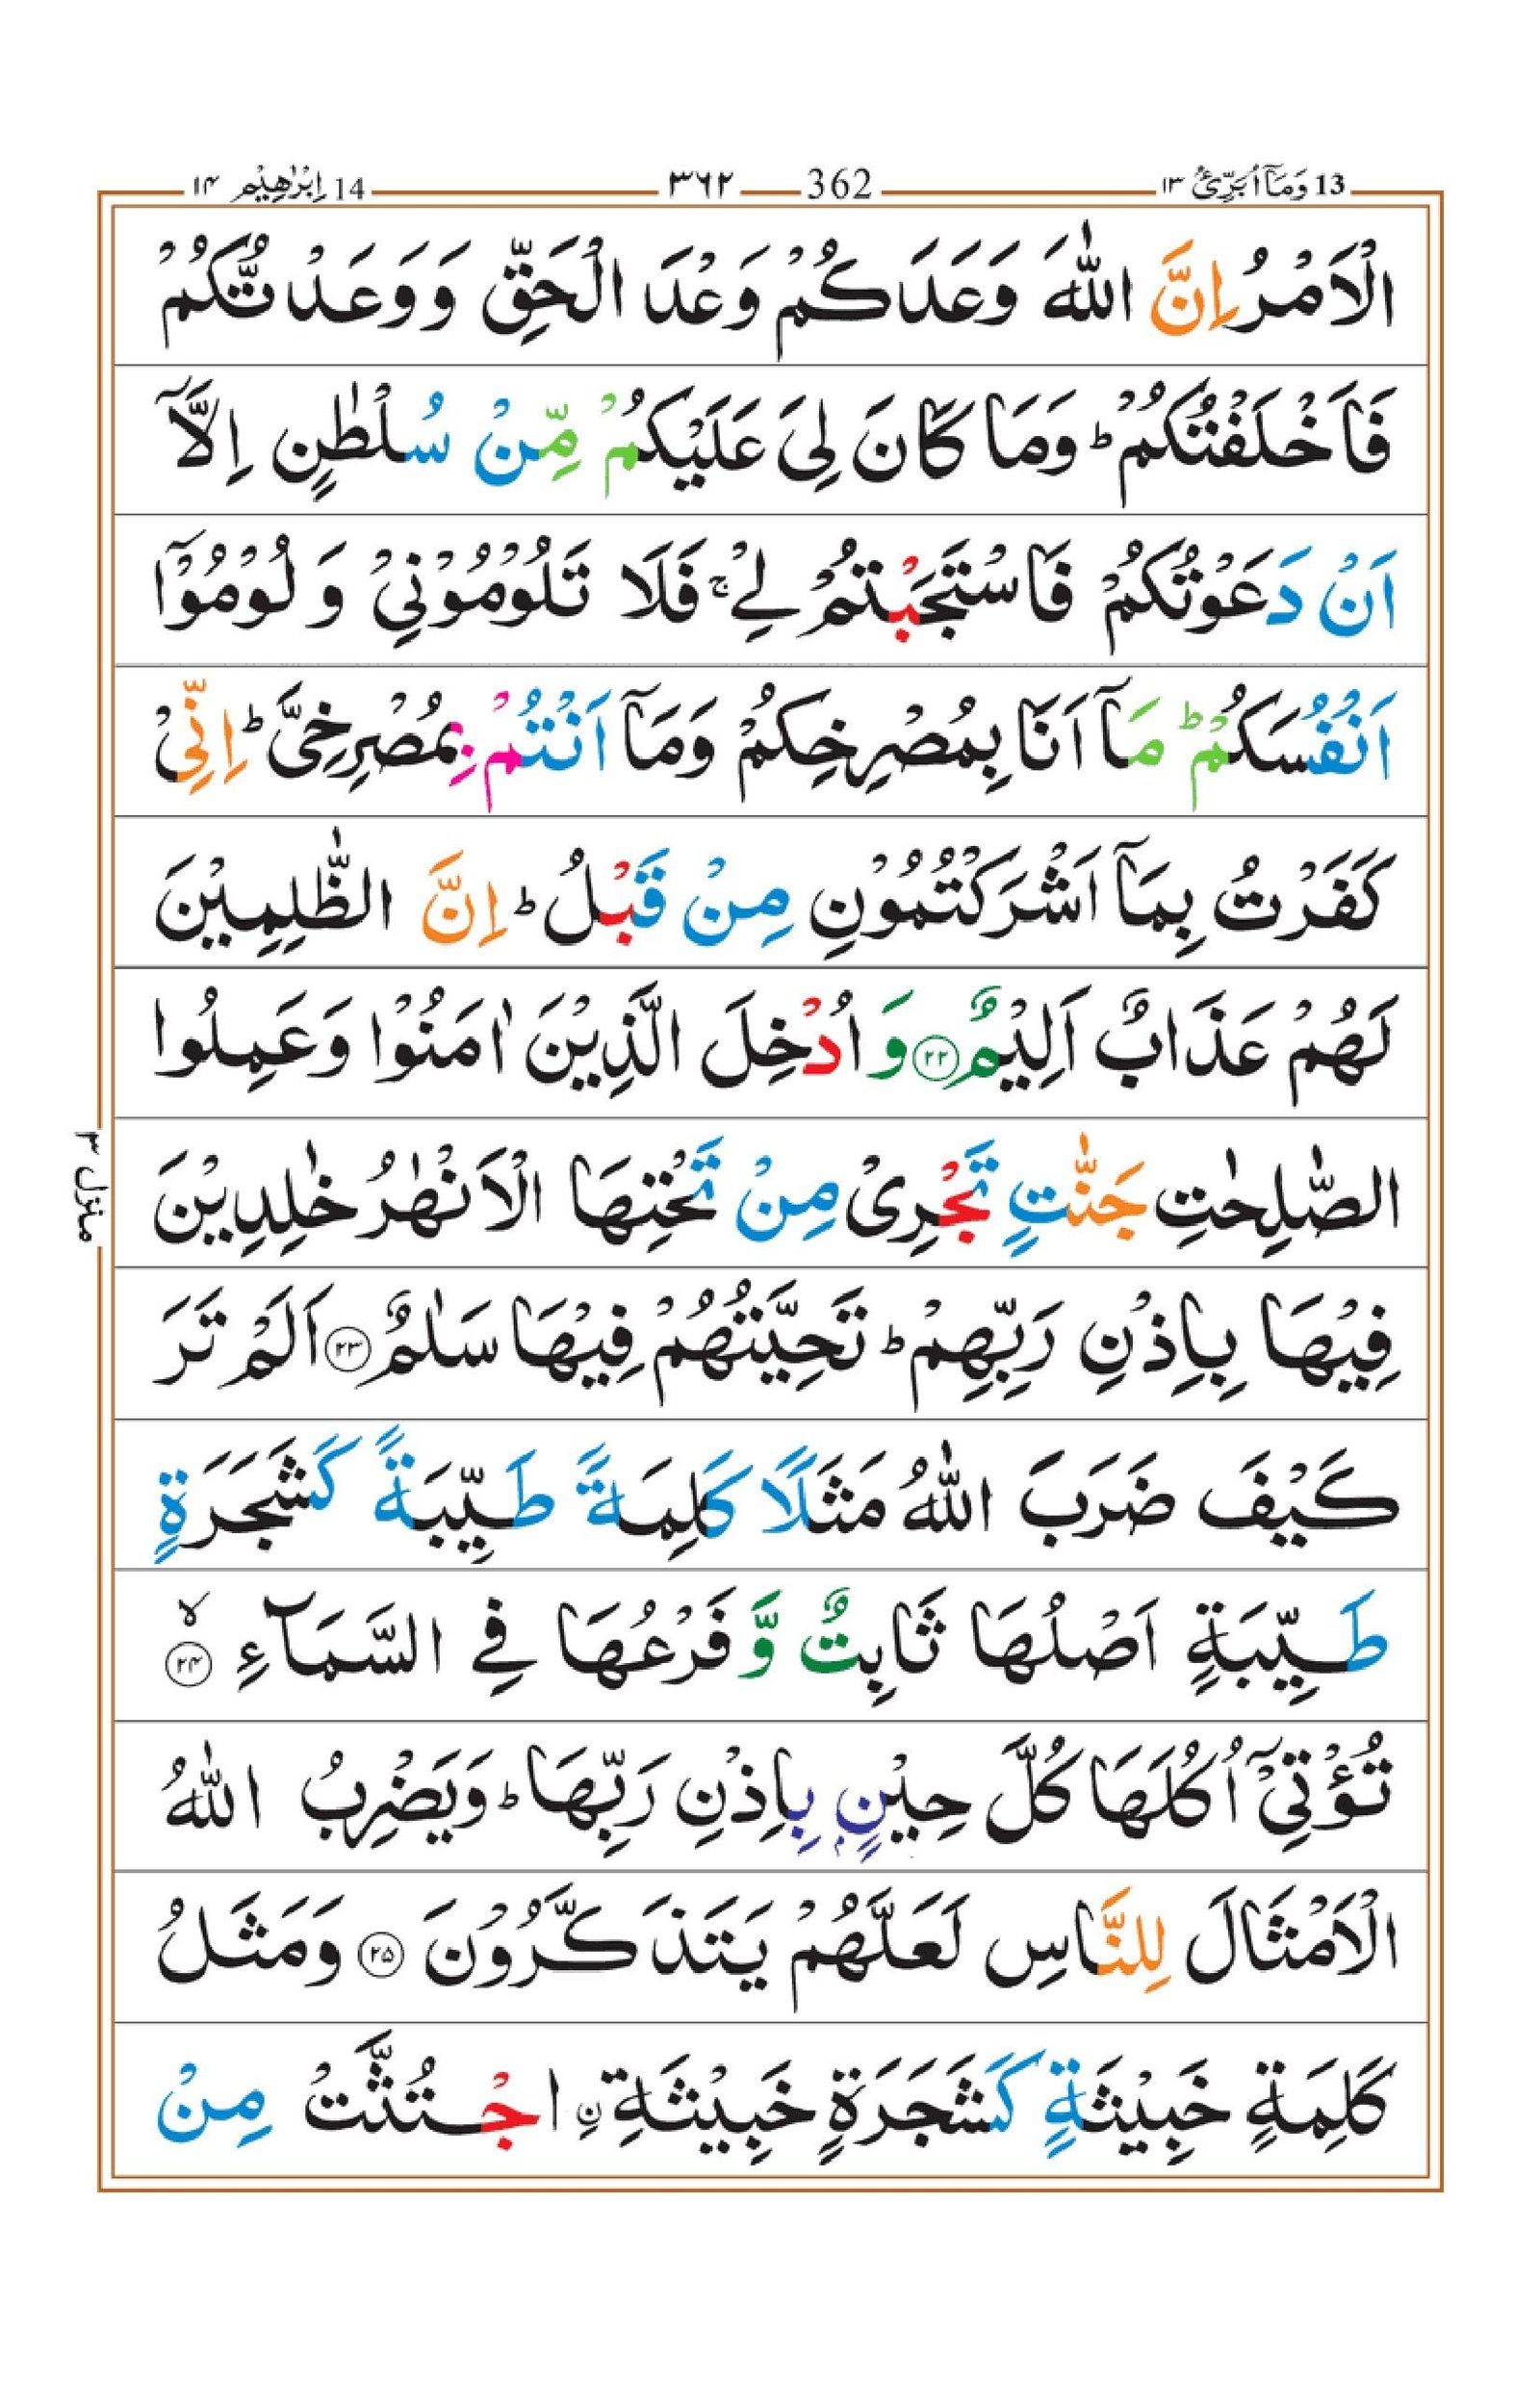 13 وَمَاۤ اُبَرِّئُ ١٣ 362 ٣٦٢ 14 اِبْرٰهِيْم ١٤
الْاَمْرُ اِنَّ اللّٰهَ وَعَدَكُمْ وَعْدَ الْحَقِّ وَوَعَدْتُّكُمْ
فَاَخْلَفْتُكُمْ ؕ وَمَا كَانَ لِىَ عَلَيْكُمْ مِّنْ سُلْطٰنٍ اِلَّاۤ
اَنْ دَعَوْتُكُمْ فَاسْتَجَبْتُمْ لِىْ ۚ فَلَا تَلُوْمُوْنِىْ وَ لُوْمُوْۤا
اَنْفُسَكُمْ ؕ مَاۤ اَنَا بِمُصْرِخِكُمْ وَمَاۤ اَنْتُمْ بِمُصْرِخِىَّ ؕ اِنِّىْ
كَفَرْتُ بِمَاۤ اَشْرَكْتُمُوْنِ مِنْ قَبْلُ ؕ اِنَّ الظّٰلِمِيْنَ
لَهُمْ عَذَابٌ اَلِيْمٌ ﴿٢٢﴾ وَ اُدْخِلَ الَّذِيْنَ اٰمَنُوْا وَعَمِلُوا
الصّٰلِحٰتِ جَنّٰتٍ تَجْرِىْ مِنْ تَحْتِهَا الْاَنْهٰرُ خٰلِدِيْنَ
فِيْهَا بِاِذْنِ رَبِّهِمْ ؕ تَحِيَّتُهُمْ فِيْهَا سَلٰمٌ ﴿٢٣﴾ اَلَمْ تَرَ
كَيْفَ ضَرَبَ اللّٰهُ مَثَلًا كَلِمَةً طَيِّبَةً كَشَجَرَةٍ
طَيِّبَةٍ اَصْلُهَا ثَابِتٌ وَّ فَرْعُهَا فِى السَّمَآءِ ۙ ﴿٢٤﴾
تُؤْتِىْۤ اُكُلَهَا كُلَّ حِيْنٍۭ بِاِذْنِ رَبِّهَا ؕ وَيَضْرِبُ اللّٰهُ
الْاَمْثَالَ لِلنَّاسِ لَعَلَّهُمْ يَتَذَكَّرُوْنَ ﴿٢٥﴾ وَمَثَلُ
كَلِمَةٍ خَبِيْثَةٍ كَشَجَرَةٍ خَبِيْثَةِ ن اجْتُثَّتْ مِنْ
منزل ٣